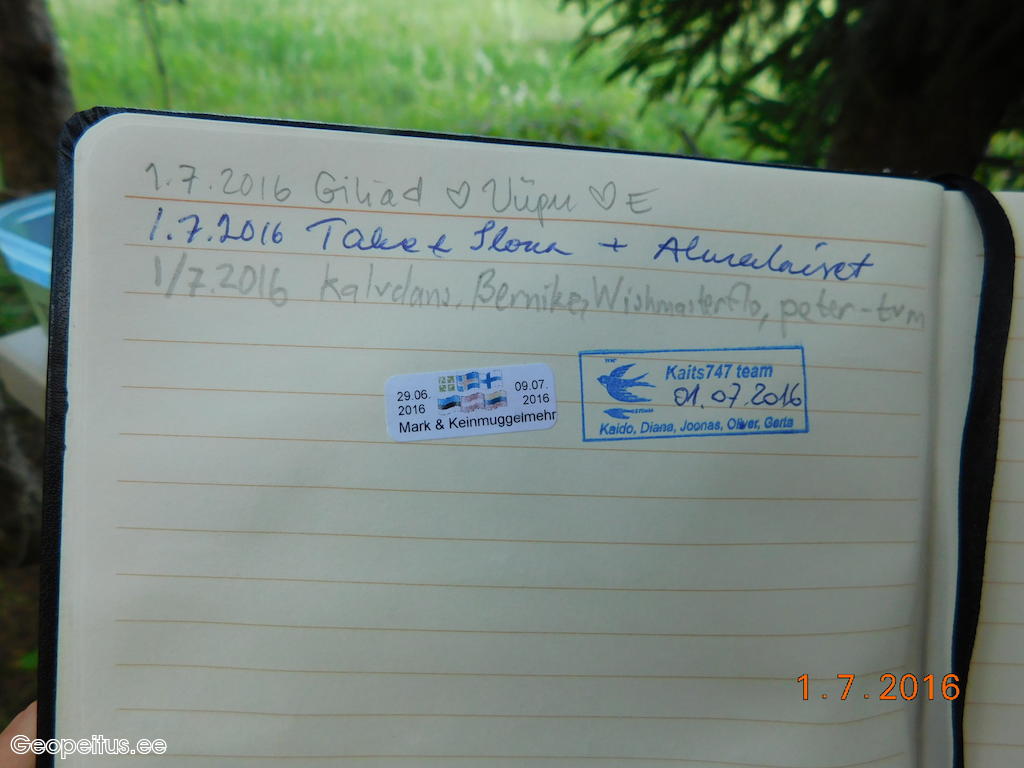 1.7.2016 Giliad ♡ Viipu ♡ E
1.7.2016 Take & Ilona + Almedaiset
1/7.2016 kalvdans, Bernike, Wishmasterflo, peter-tvm
29.06. 2016
09.07. 2016
Mark & Keinmuggelmehr
Kaits747 team
01.07.2016
Kaido, Diana, Joonas, Oliver, Gerta
1.7.2016
Geopeitus.ee